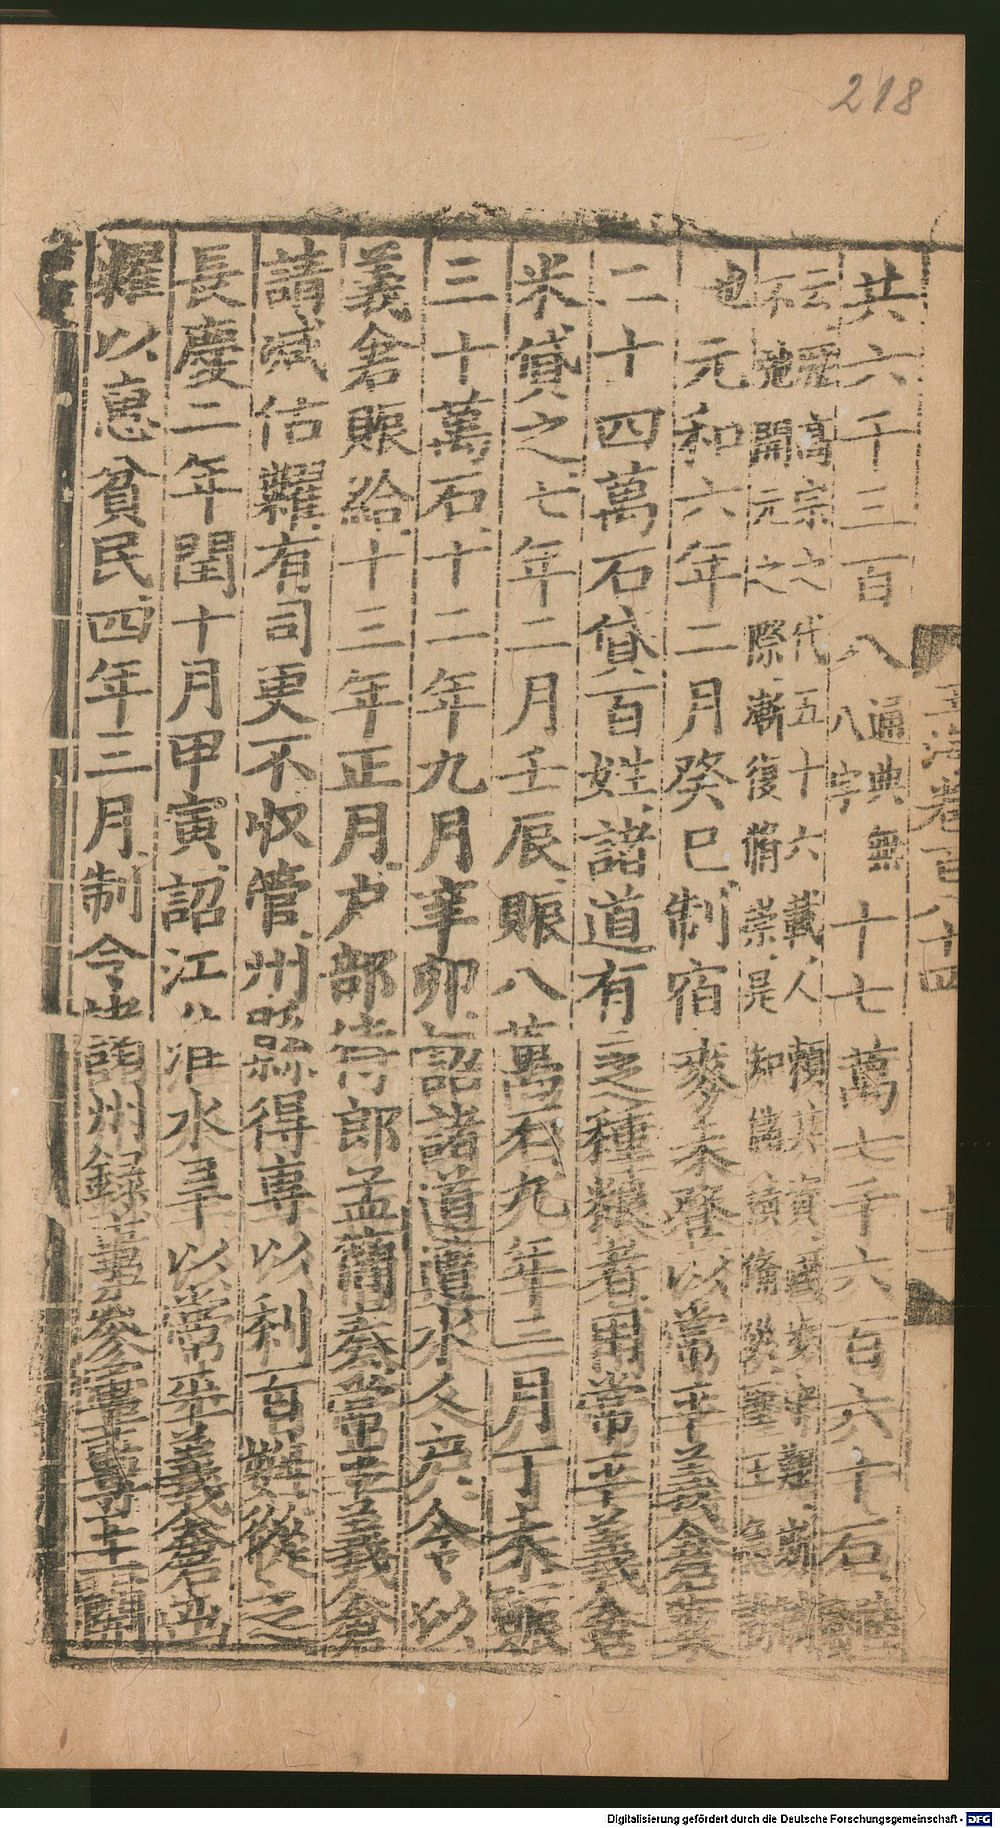 218
玉海卷百八十四
十一
共六千三百八通典無八字十七萬七千六百六十石
云歷高宗之代五十六載人賴其資國步中艱
不弛開元之際漸復脩崇是知儲積備災聖王
也元和六年二月癸巳制宿麥未登以常平義倉粟
二十四萬石貸百姓諸道有乏種糧者用常平義倉
米貸之七年二月壬辰賑八萬石九年三月丁未賑
三十萬石十二年九月辛卯詔諸道遭水人户令以
義倉賑給十三年正月户部侍郎孟簡奏常平義倉
請減估糶有司更不收管州縣得專以利百姓從之
長慶二年閏十月甲寅詔江淮水旱以常平義倉出
糶以惠貧民四年三月制令諸州録事參軍専主
Digitalisierung gefördert durch die Deutsche Forschungsgemeinschaft - DFG